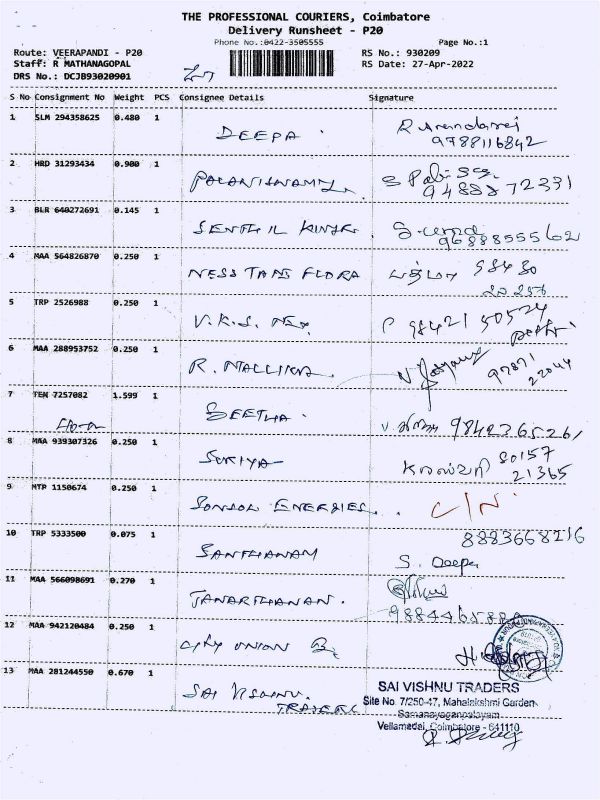 THE PROFESSIONAL COURIERS, Coimbatore
Delivery Runsheet - P20
Phone No.:0422-3505555
Page No.:1
Route: VEERAPANDI - P20
RS No.: 930209
Staff: R MATHANAGOPAL
RS Date: 27-Apr-2022
DRS No.: DCJB93020901
S No Consignment No Weight PCS Consignee Details Signature
1 SLM 294358625 0.480 1 DEEPA
9788116842
2 HRD 31293434 0.900 1 PALANISWAMY
94888 72331
3 BLR 640272691 0.145 1 SENTHIL KUMAR
9688855562
4 MAA 564826870 0.250 1 NESS TANS FLORA 98430
20256
5 TRP 2526988 0.250 1 V.K.S. 98421 50524
6 MAA 288953752 0.250 1 R. MALLIKA
97871
22044
7 TEN 7257082 1.599 1 SEETHA 9842365261
8 MAA 939307326 0.250 1 SURIYA 80157
21365
9 MTP 1150674 0.250 1 SONSOL ENERGIES C/N
10 TRP 5333500 0.075 1 8883668216
SANTHANAM S. Deepa
11 MAA 566098691 0.270 1 JANARTHANAN.
12 MAA 942120484 0.250 1 CITY UNION B
13 MAA 281244550 0.670 1 SAI VISHNU
TRADERS
SAI VISHNU TRADERS
Site No. 7/250-47, Mahalakshmi Garden
Samanayaganpalayam
Vellamadai, Coimbatore - 641110